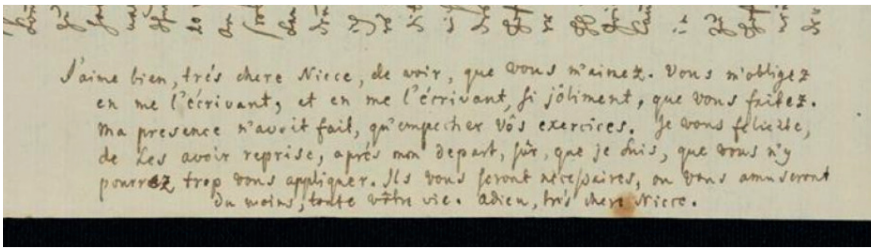 J'aime bien, trés chere Niece, de voir, que vous m'aimez. Vous m'obligez
en me l'écrivant, et en me l'écrivant, si jôliment, que vous faitez.
Ma presence n'avoit fait, qu'empecher vôs exercices. Je vous felicite,
de Les avoir reprise, aprés mon depart, sûr, que je suis, que vous n'y
pourrez trop vous appliquer. Ils vous seront necessaires, ou vous amuseront
du moins, toute vôtre vie. Adieu, trés chere Niece.